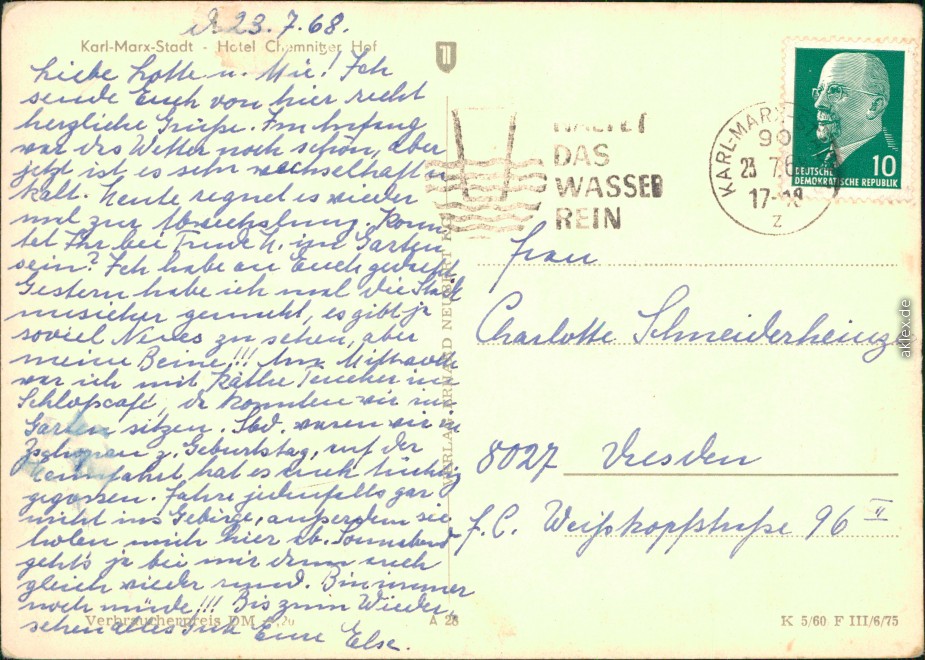 d. 23.7.68.
Karl-Marx-Stadt - Hotel Chemnitzer Hof
Liebe Lotte u. Mie! Ich
sende Euch von hier recht
herzliche Grüße. Im Anfang
war das Wetter noch schön, aber
jetzt ist es sehr wechselhaft u.
kalt. Heute regnet es wieder
mal zur Abwechslung. Konn
tet Ihr bei Trude H. im Garten
sein? Ich habe an Euch gedacht.
Gestern habe ich mal die Stadt
unsicher gemacht, es gibt ja
soviel Neues zu sehen, aber
meine Beine!!! Am Mittwoch
war ich mit Käthe im
Schloßcafé, da konnten wir im
Garten sitzen. Sbd. waren wir in
Zschopau z. Geburtstag, auf der
Heimfahrt hat es auch tüchtig
gegossen. Fahre jedenfalls gar
nicht ins Gebirge, außerdem sie
holen mich hier ab. Sonnabend
geht's ja bei mir dann auch
gleich wieder rund. Bin immer
noch müde!!! Bis zum Wieder-
sehen alles Gute Eure Else.
HALTET
DAS
WASSER
REIN
KARL-MARX-ST
90
23 7.6
17-18
z
10
DEUTSCHE
DEMOKRATISCHE REPUBLIK
Frau
Charlotte Schneiderheinze
8027 Dresden
F. C. Weißkopfstraße 96 II
VERLAG ERHARD NEUBERT KG
Verbraucherpreis DM -,20
A 28
K 5/60 F III/6/75
aklex.de